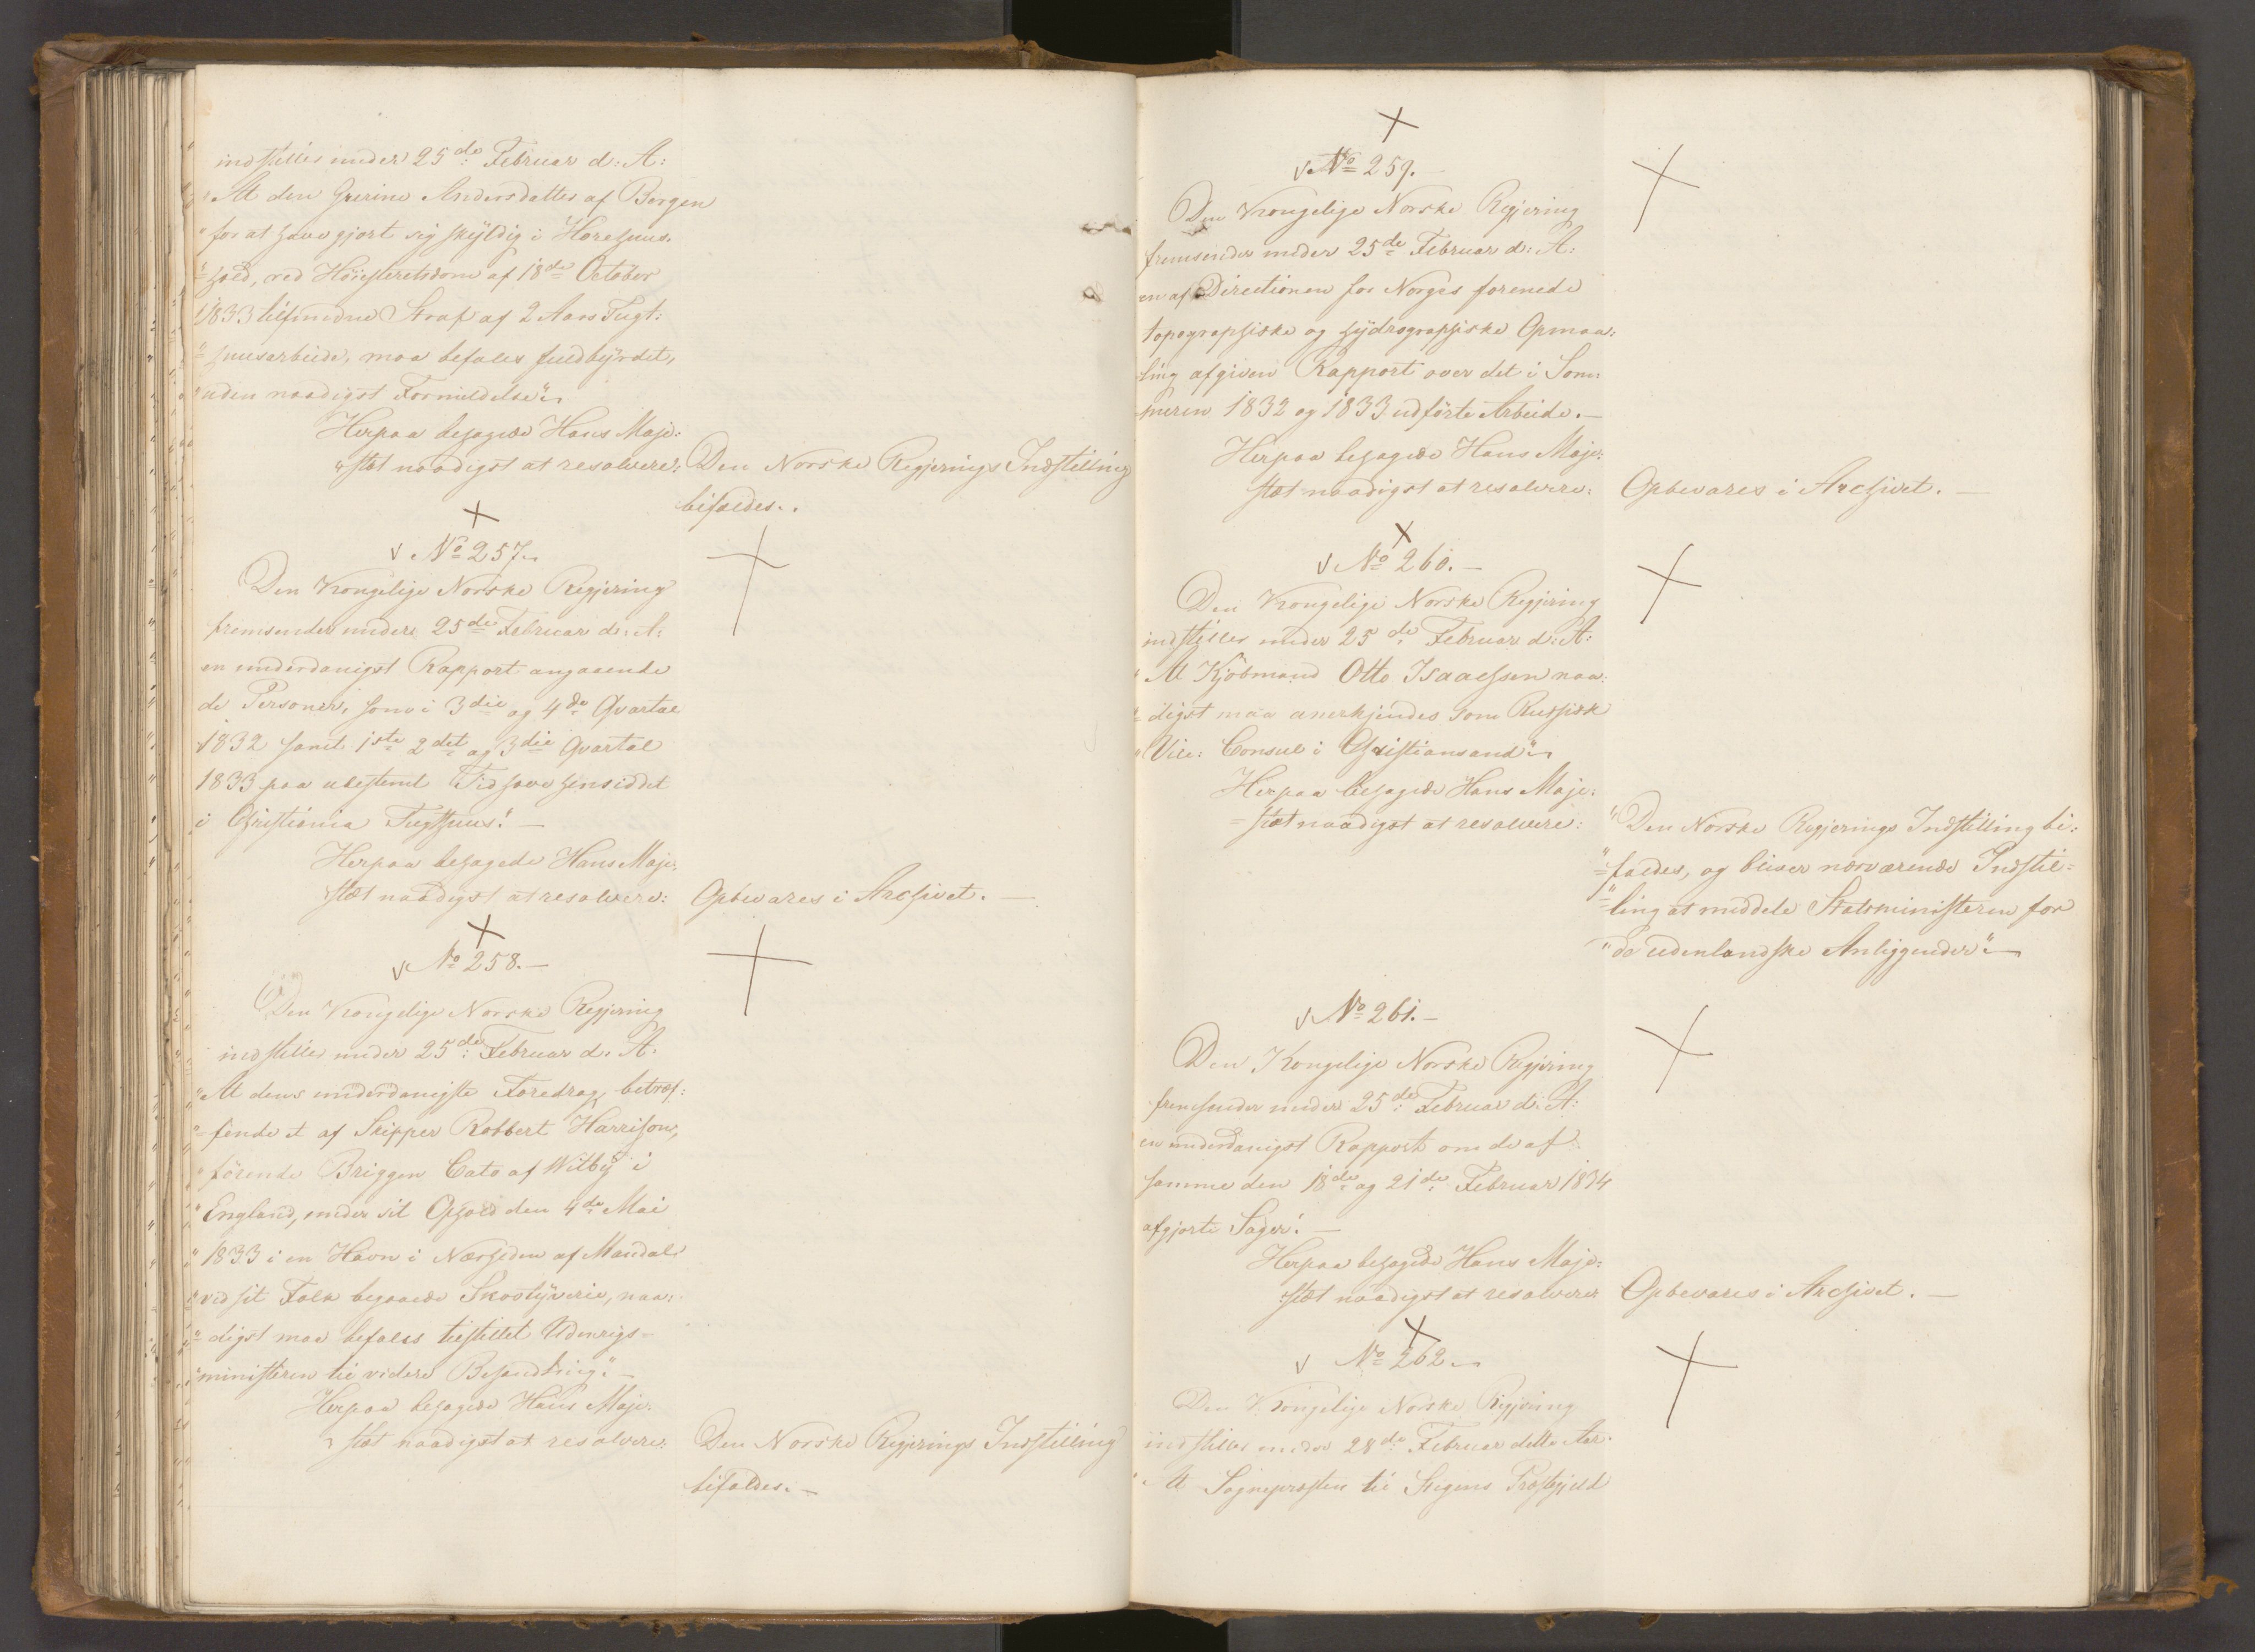 indstilles under 25de Februar d: A:
"At den Gurine Andersdatter af Bergen
"for at have gjort sig skyldig i Horehuus-
"=hold, ved Høiesteretsdom af 18de October
"1833 tilfundne Straf af 2 Aars Tugt:
"=huusarbeide, maa befales fuldbyrdet,
"uden naadigst Formildelse".
Herpaa behagede Hans Maje:
"stæt naadigst at resolvere: Den Norske Regjerings Indstilling
bifaldes..
No 257.
Den Kongelige Norske Regjering
fremsender under 25de Februar d: A:
en underdanigst Rapport angaaende
de Personer, som i 3die og 4de Qvartal
1832 samt 1ste 2det og 3die Qvartal
1833 paa ubestemt Tid have hensiddet
i Christiania Tugthuus! —
Herpaa behagede Hans Maje:
stæt naadigst at resolvere: Opbevares i Archivet. —
No 258. —
Den Kongelige Norske Regjering
indstilles under 25de Februar d: A.
"At dens underdanigste Foredrag, betræf:
"=fende et af Skipper Robbert Harrison,
"førende Briggen Cato af Witby i
"England, under sit Ophold den 4de Mai
"1833 i en Havn i Nærheden af Mandal
"ved sit Folk begaaede Skovtyverie, naa:
"=digst maa befales tilstillet Udenrigs=
"ministeren til videre Behandling". —
Herpaa behagede Hans Maje:
stæt naadigst at resolvere: Den Norske Regjerings Indstilling
bifaldes. —
No 259. —
Den Kongelige Norske Regjering
fremsender under 25de Februar d: A:
en af Directionen for Norges forenede
topographiske og hydrographiske Opmaa:
ling afgiven Rapport over det i Som:
meren 1832 og 1833 udførte Arbeide. —
Herpaa behagede Hans Maje:
stæt naadigst at resolvere: Opbevares i Archivet. —
No 260. —
Den Kongelige Norske Regjering
indstilles under 25de Februar d: A:
"At Kjöbmand Otto Isaachsen naa:
"=digst maa anerkjendes som Russisk
"Vice: Consul i Christiansand".
Herpaa behagede Hans Maje:
=stæt naadigst at resolvere: "Den Norske Regjerings Indstilling bi:
"=faldes, og bliver nærværende Indstil=
"=ling at meddele Statsministeren for
"de udenlandske Anliggender". —
No 261. —
Den Kongelige Norske Regjering
fremsender under 25de Februar d: A:
en underdanigst Rapport om de af
samme den 18de og 21de Februar 1834
afgjorte Sager! —
Herpaa behagede Hans Maje:
stæt naadigst at resolvere Opbevares i Archivet. —
No 262.
Den Kongelige Norske Regjering
indstilles under 28de Februar dette Aar.
"At Sognepræsten til Stegens Præstegjeld